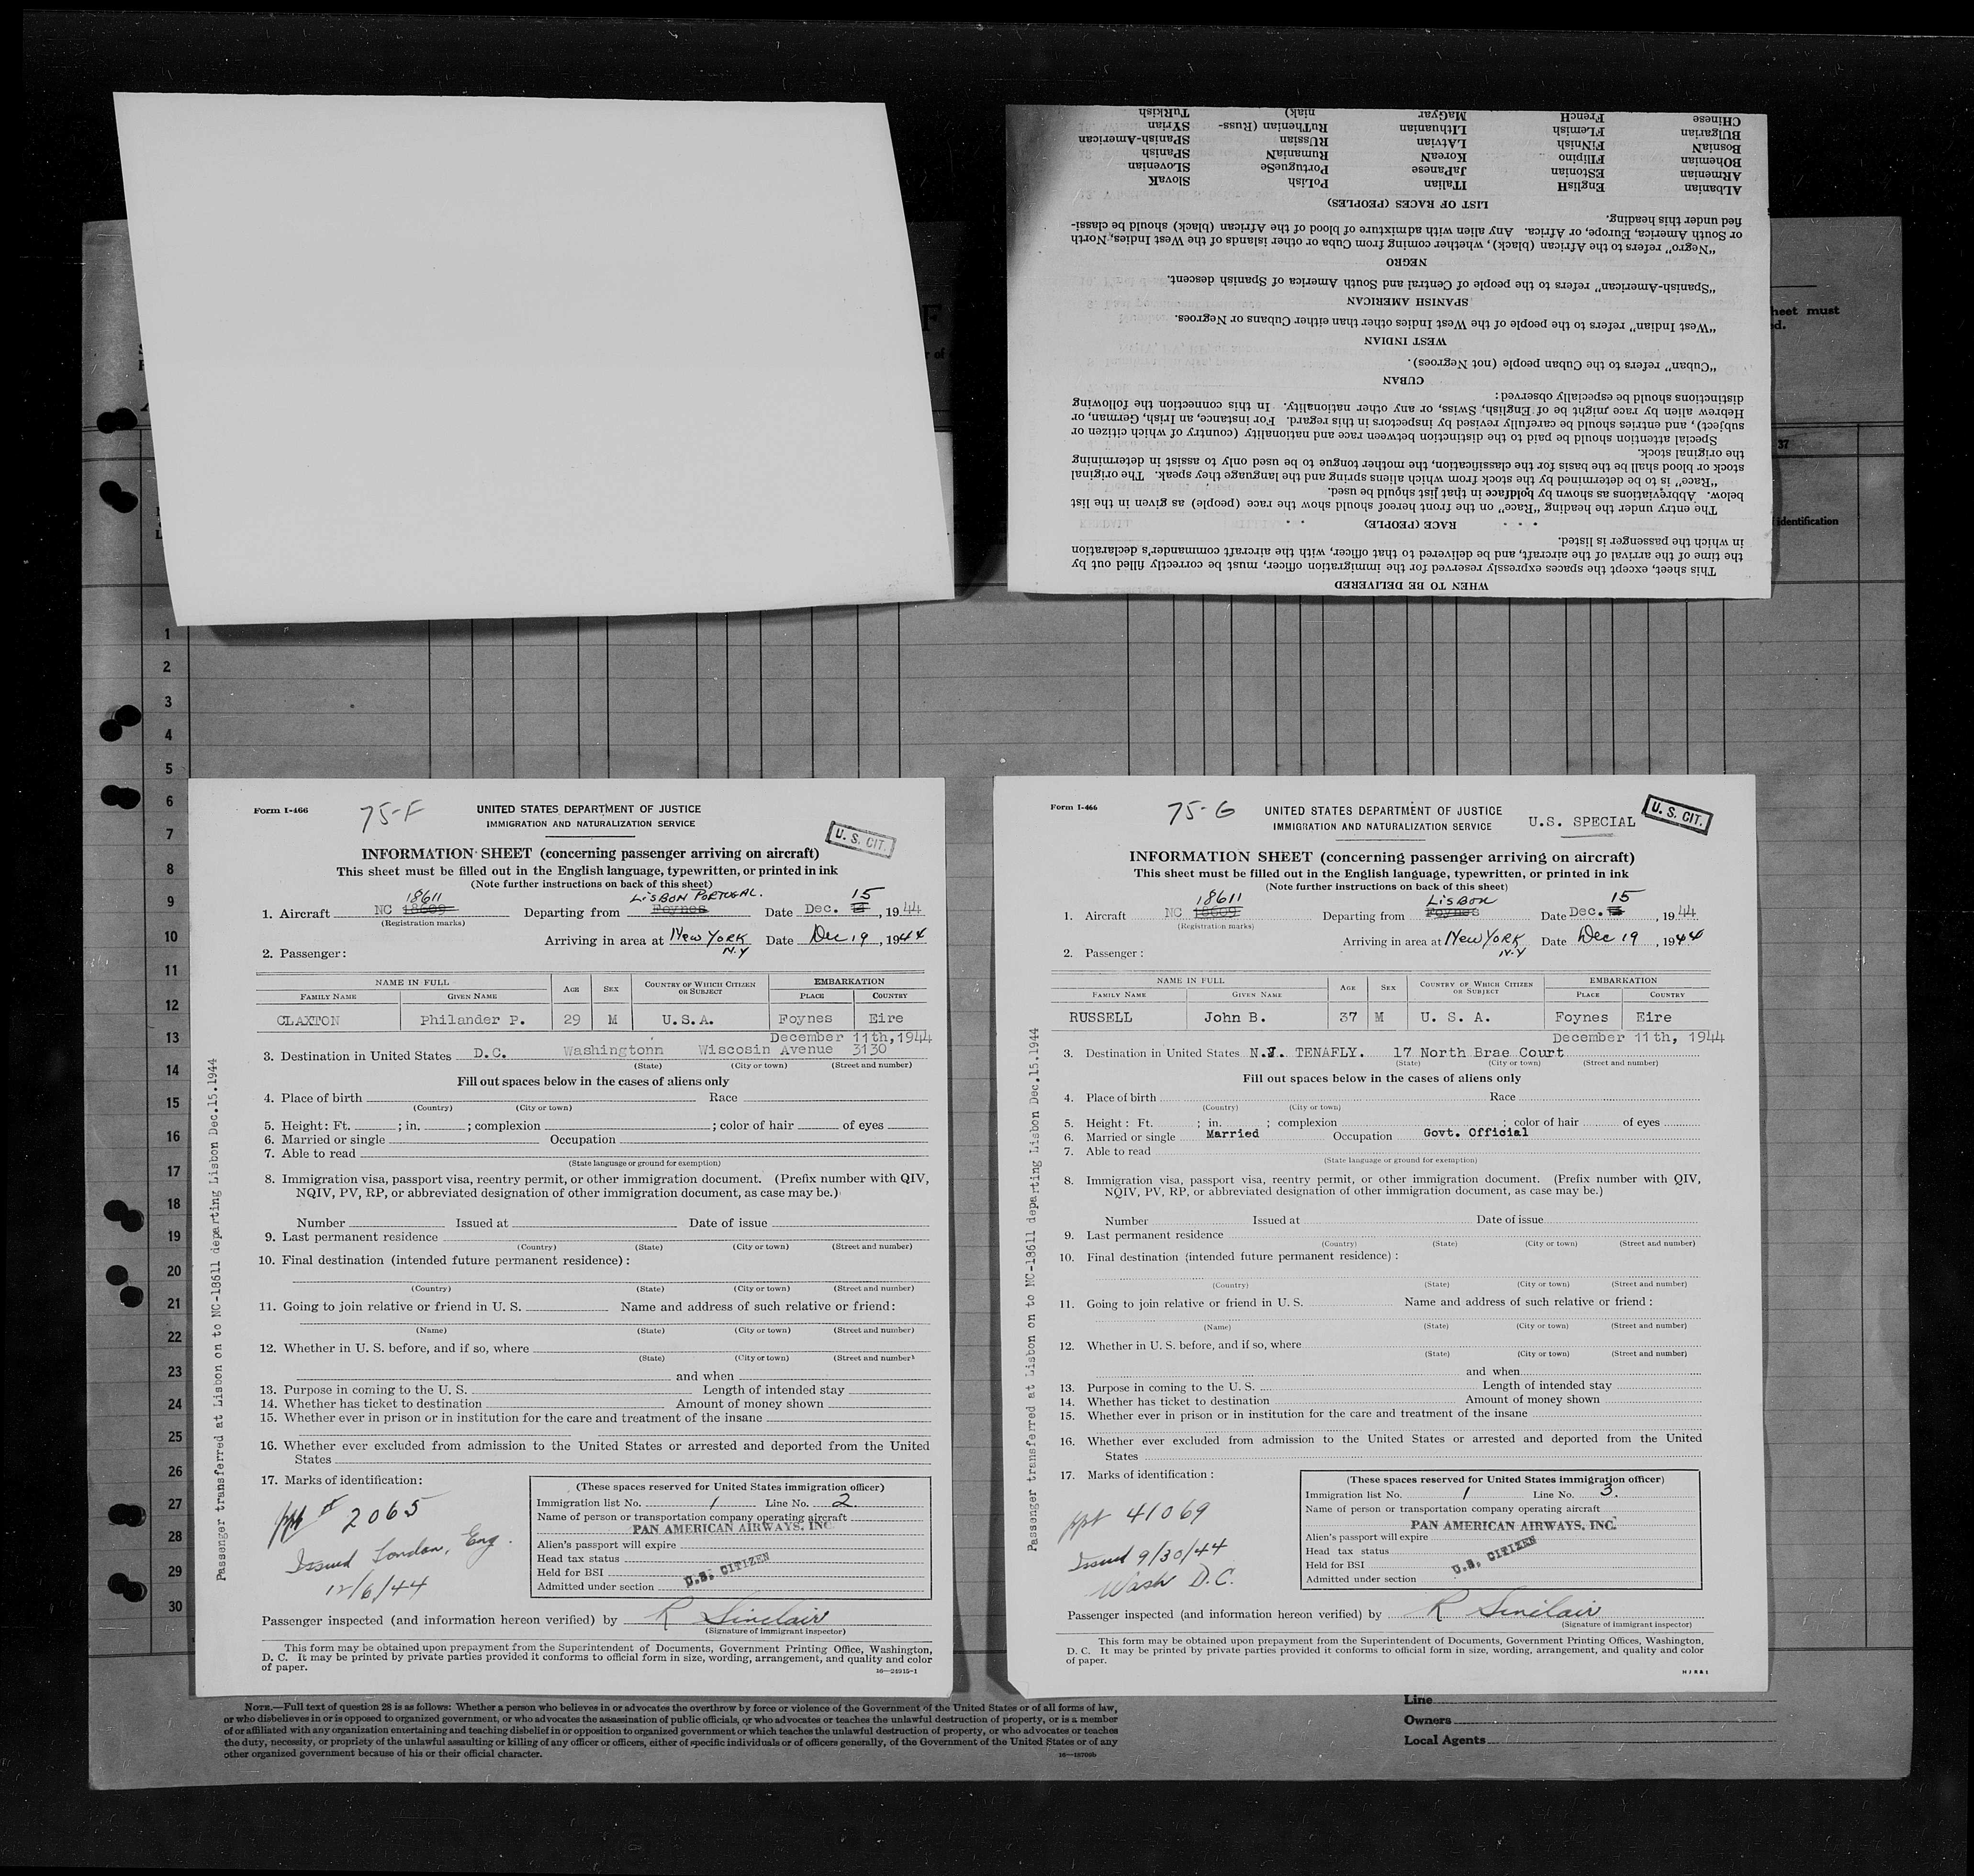 WHEN TO BE DELIVERED
This sheet, except the spaces expressly reserved for the immigration officer, must be correctly filled out by
the time of the arrival of the aircraft, and be delivered to that officer, with the aircraft commander's declaration
in which the passenger is listed.
RACE (PEOPLE)
The entry under the heading "Race" on the front hereof should show the race (people) as given in the list
below. Abbreviations as shown by boldface in that list should be used.
"Race" is to be determined by the stock from which aliens spring and the language they speak. The original
stock or blood shall be the basis for the classification, the mother tongue to be used only to assist in determining
the original stock.
Special attention should be paid to the distinction between race and nationality (country of which citizen or
subject), and entries should be carefully revised by inspectors in this regard. For instance, an Irish, German, or
Hebrew alien by race might be of English, Swiss, or any other nationality. In this connection the following
distinctions should be especially observed:
CUBAN
"Cuban" refers to the Cuban people (not Negroes).
WEST INDIAN
"West Indian" refers to the people of the West Indies other than either Cubans or Negroes.
SPANISH AMERICAN
"Spanish-American" refers to the people of Central and South America of Spanish descent.
NEGRO
"Negro" refers to the African (black), whether coming from Cuba or other islands of the West Indies, North
or South America, Europe, or Africa. Any alien with admixture of blood of the African (black) should be classi-
fied under this heading.
LIST OF RACES (PEOPLES)
ALbanian EnglisH ITalian PoLish SlovaK
ARmenian EStonian JaPanese PortugueSe SLovenian
BOhemian FIlipino KoreaN RumaniaN SPanish
BosniaN FiNnish LAtvian RUssian SPanish-American
BUlgarian FLemish LIthuanian RuThenian (Russ- SYrian
CHinese FrencH MaGyar niak) TuRkish
heet must
d.
37
identification
1
2
3
4
5
6
7
8
9
10
11
12
13
14
15
16
17
18
19
20
21
22
23
24
25
26
27
28
29
30
Form I-466
75-F
UNITED STATES DEPARTMENT OF JUSTICE
IMMIGRATION AND NATURALIZATION SERVICE
U. S. CIT.
INFORMATION SHEET (concerning passenger arriving on aircraft)
This sheet must be filled out in the English language, typewritten, or printed in ink
(Note further instructions on back of this sheet)
18611 LISBON PORTUGAL. 15
1. Aircraft NC 18609 Departing from Foynes Date Dec. , 1944
(Registration marks)
Arriving in area at New York Date Dec 19, 1944
N.Y
2. Passenger:
NAME IN FULL AGE SEX COUNTRY OF WHICH CITIZEN OR SUBJECT EMBARKATION
FAMILY NAME GIVEN NAME PLACE COUNTRY
CLAXTON Philander P. 29 M U.S.A. Foynes Eire
December 11th,1944
3. Destination in United States D.C. Washingtonn Wiscosin Avenue 3130
(State) (City or town) (Street and number)
Fill out spaces below in the cases of aliens only
4. Place of birth Race
(Country) (City or town)
5. Height: Ft. ; in. ; complexion ; color of hair of eyes
6. Married or single Occupation
7. Able to read
(State language or ground for exemption)
8. Immigration visa, passport visa, reentry permit, or other immigration document. (Prefix number with QIV,
NQIV, PV, RP, or abbreviated designation of other immigration document, as case may be.)
Number Issued at Date of issue
9. Last permanent residence
(Country) (State) (City or town) (Street and number)
10. Final destination (intended future permanent residence):
(Country) (State) (City or town) (Street and number)
11. Going to join relative or friend in U. S. Name and address of such relative or friend:
(Name) (State) (City or town) (Street and number)
12. Whether in U. S. before, and if so, where
(State) (City or town) (Street and number)
and when
13. Purpose in coming to the U. S. Length of intended stay
14. Whether has ticket to destination Amount of money shown
15. Whether ever in prison or in institution for the care and treatment of the insane
16. Whether ever excluded from admission to the United States or arrested and deported from the United
States
17. Marks of identification:
ppt # 2065
Issued London, Eng.
12/6/44
(These spaces reserved for United States immigration officer)
Immigration list No. 1 Line No. 2.
Name of person or transportation company operating aircraft
PAN AMERICAN AIRWAYS, INC
Alien's passport will expire
Head tax status
Held for BSI
U.S. CITIZEN
Admitted under section
Passenger inspected (and information hereon verified) by R Sinclair
(Signature of immigrant inspector)
This form may be obtained upon prepayment from the Superintendent of Documents, Government Printing Office, Washington,
D. C. It may be printed by private parties provided it conforms to official form in size, wording, arrangement, and quality and color
of paper.
16—24915-1
Passenger transferred at Lisbon on to NC-18611 departing Lisbon Dec.15.1944
Form I-466
75-G
UNITED STATES DEPARTMENT OF JUSTICE
IMMIGRATION AND NATURALIZATION SERVICE
U.S. SPECIAL
U. S. CIT.
INFORMATION SHEET (concerning passenger arriving on aircraft)
This sheet must be filled out in the English language, typewritten, or printed in ink
(Note further instructions on back of this sheet)
18611 LISBON 15
1. Aircraft NC 18609 Departing from Foynes Date Dec. , 1944
(Registration marks)
Arriving in area at New York Date Dec 19, 1944
N.Y
2. Passenger:
NAME IN FULL AGE SEX COUNTRY OF WHICH CITIZEN OR SUBJECT EMBARKATION
FAMILY NAME GIVEN NAME PLACE COUNTRY
RUSSELL John B. 37 M U. S. A. Foynes Eire
December 11th, 1944
3. Destination in United States N.J. TENAFLY. 17 North Brae Court
(State) (City or town) (Street and number)
Fill out spaces below in the cases of aliens only
4. Place of birth Race
(Country) (City or town)
5. Height: Ft. ; in. ; complexion ; color of hair of eyes
6. Married or single Married Occupation Govt. Official
7. Able to read
(State language or ground for exemption)
8. Immigration visa, passport visa, reentry permit, or other immigration document. (Prefix number with QIV,
NQIV, PV, RP, or abbreviated designation of other immigration document, as case may be.)
Number Issued at Date of issue
9. Last permanent residence
(Country) (State) (City or town) (Street and number)
10. Final destination (intended future permanent residence):
(Country) (State) (City or town) (Street and number)
11. Going to join relative or friend in U. S. Name and address of such relative or friend:
(Name) (State) (City or town) (Street and number)
12. Whether in U. S. before, and if so, where
(State) (City or town) (Street and number)
and when
13. Purpose in coming to the U. S. Length of intended stay
14. Whether has ticket to destination Amount of money shown
15. Whether ever in prison or in institution for the care and treatment of the insane
16. Whether ever excluded from admission to the United States or arrested and deported from the United
States
17. Marks of identification:
ppt 41069
Issued 9/30/44
Wash D.C.
(These spaces reserved for United States immigration officer)
Immigration list No. 1 Line No. 3.
Name of person or transportation company operating aircraft
PAN AMERICAN AIRWAYS, INC.
Alien's passport will expire
Head tax status
Held for BSI
U.S. CITIZEN
Admitted under section
Passenger inspected (and information hereon verified) by R Sinclair
(Signature of immigrant inspector)
This form may be obtained upon prepayment from the Superintendent of Documents, Government Printing Offices, Washington,
D. C. It may be printed by private parties provided it conforms to official form in size, wording, arrangement, and quality and color
of paper.
Passenger transferred at Lisbon on to NC-18611 departing Lisbon Dec.15.1944
NOTE.—Full text of question 28 is as follows: Whether a person who believes in or advocates the overthrow by force or violence of the Government of the United States or of all forms of law,
or who disbelieves in or is opposed to organized government, or who advocates the assassination of public officials, or who advocates or teaches the unlawful destruction of property, or is a member
of or affiliated with any organization entertaining and teaching disbelief in or opposition to organized government or which teaches the unlawful destruction of property, or who advocates or teaches
the duty, necessity, or propriety of the unlawful assaulting or killing of any officer or officers, either of specific individuals or of officers generally, of the Government of the United States or of any
other organized government because of his or their official character.
16—18706b
Line
Owners
Local Agents